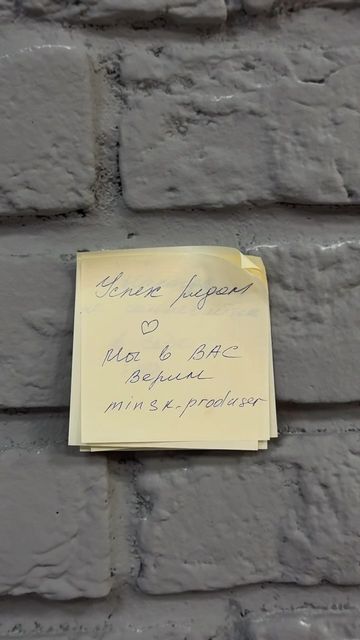 Успех рядом
Мы в ВАС
верим
minsk.produser